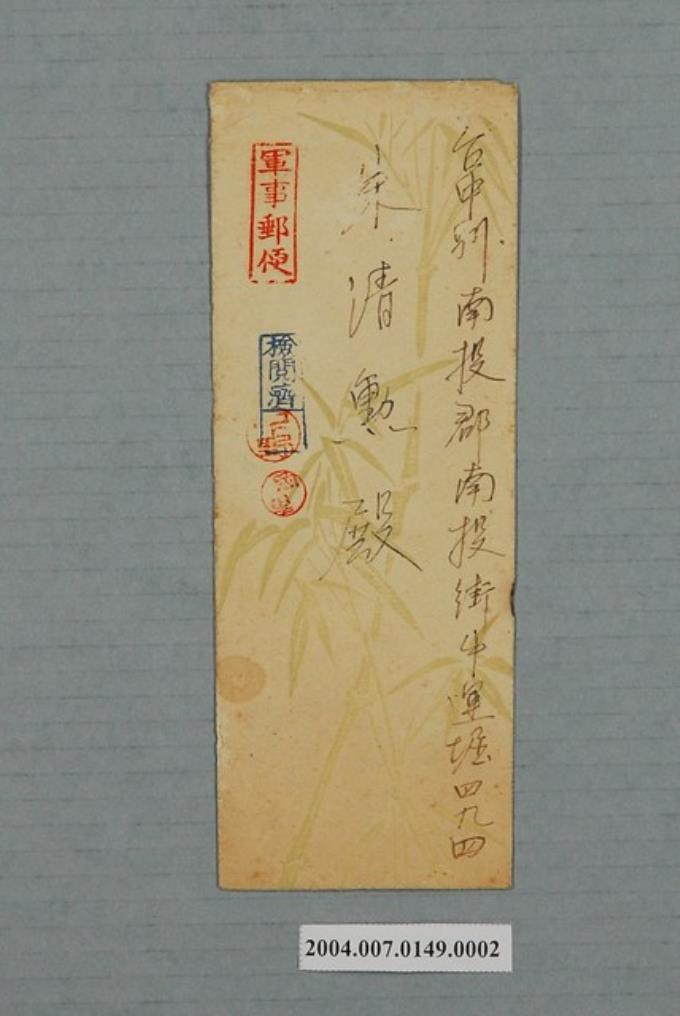 台中州南投郡南投街牛運堀四九四
清勲殿
軍事郵便
検閲濟
2004.007.0149.0002